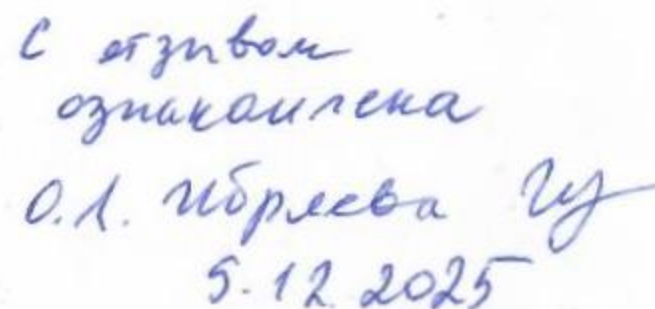 С отзывом
ознакомлена
О.Л. Ибряева
5.12.2025